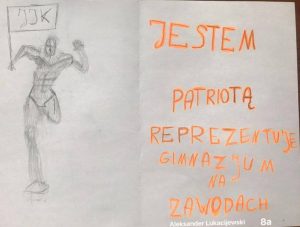 JJK
JESTEM
PATRIOTĄ
REPREZENTUJĘ
GIMNAZJUM
NA
ZAWODACH
Aleksander Lukacijewski 8a